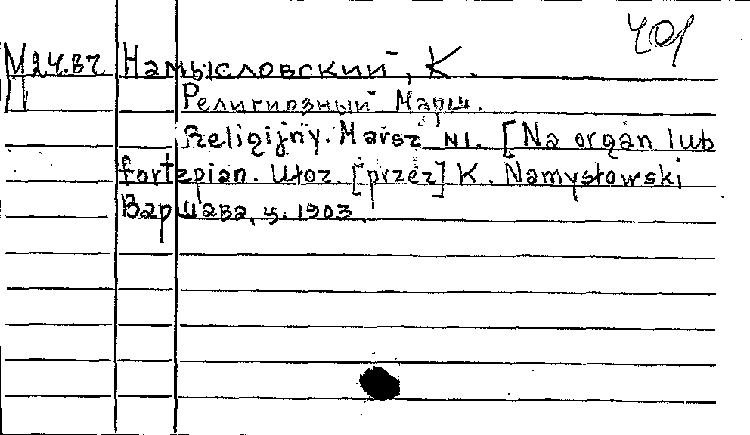 401
М24.В7 Намысловский, К.
П Религиозный Марш.
Religijny. Marsz N1. [Na organ lub
fortepian. Utoz [przez] K. Namysłowski
Варшава, ц. 1903.